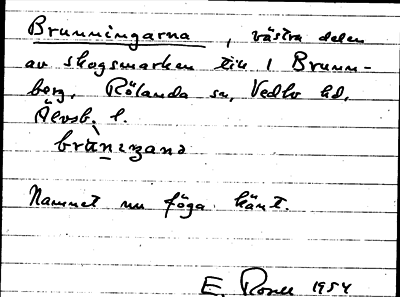 Brunningarna, västra delen
av skogsmarken till 1 Brunn-
berg, Rölanda sn, Vedbo hd,
Älvsb. l.
brùnıŋana
Namnet nu föga känt.
E. 1954